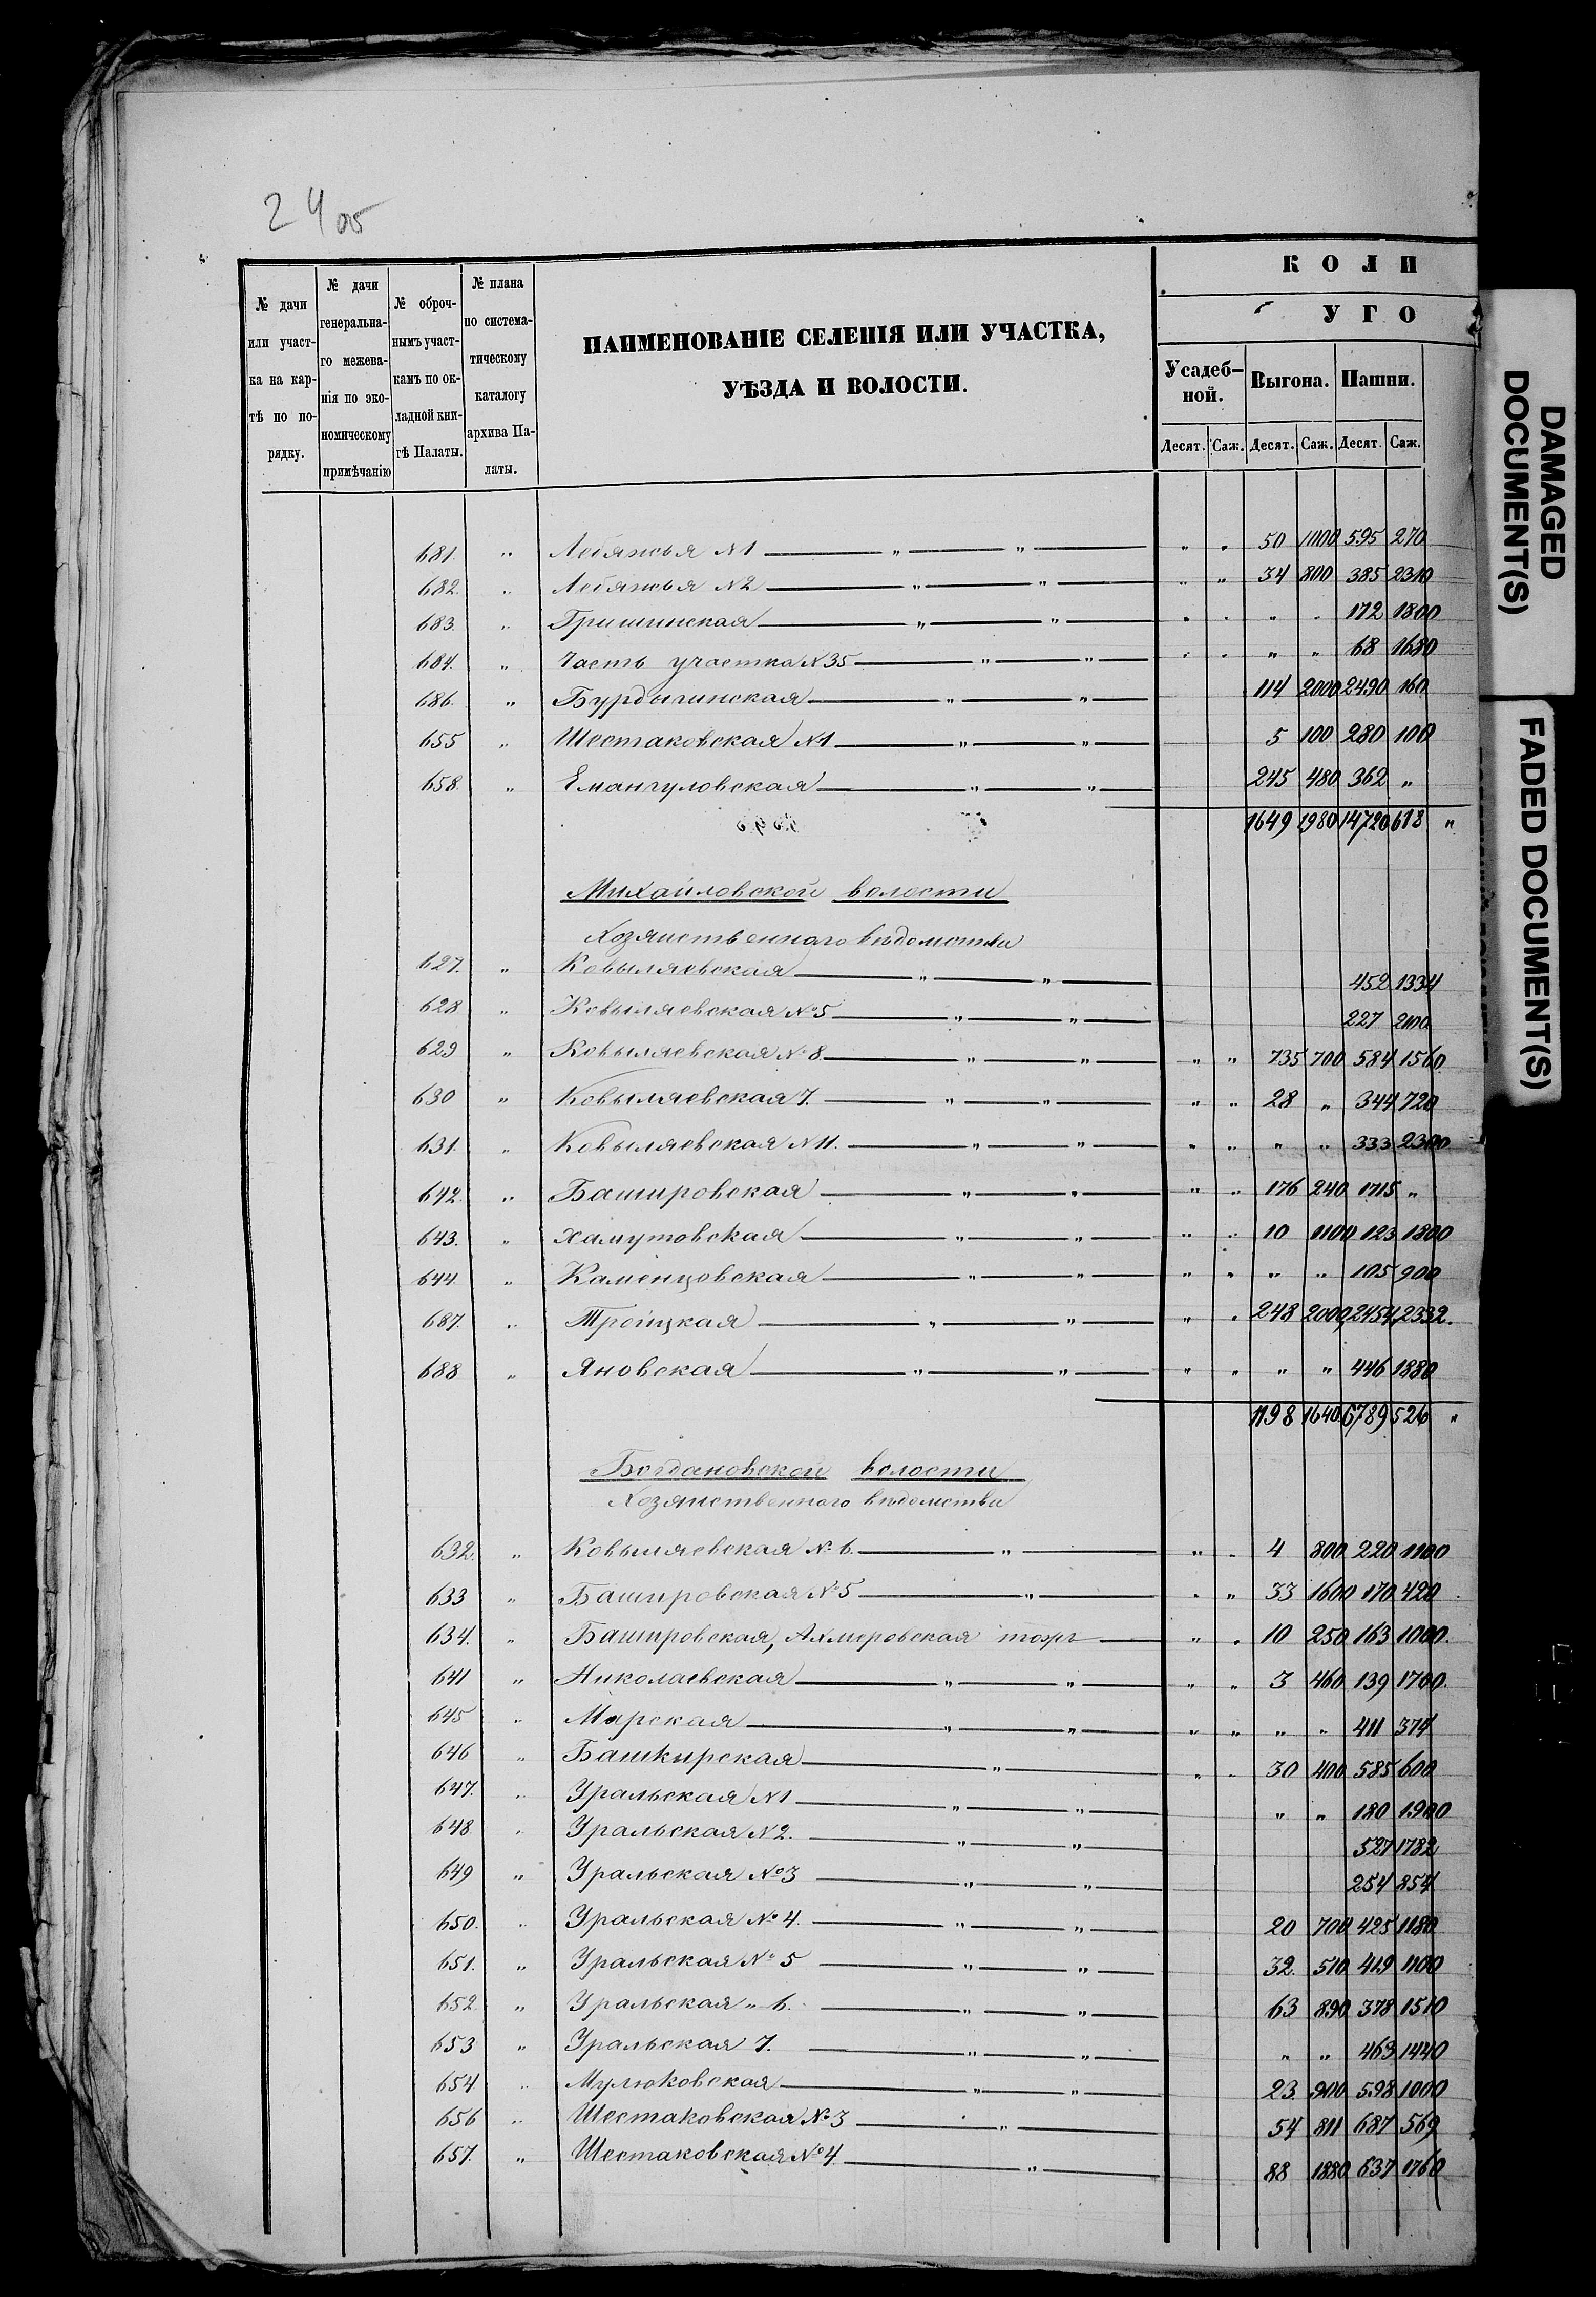 24 об
КОЛИ
УГО
№ дачи или участ-ка на кар-тѣ по по-рядку.
№ дачи генеральна-го межева-нія по эко-номическому примѣчанію
№ оброч-нымъ участ-камъ по ок-ладной кни-гѣ Палаты.
№ плана по система-тическому каталогу архива Па-латы.
НАИМЕНОВАНІЕ СЕЛЕНІЯ ИЛИ УЧАСТКА,
УѢЗДА И ВОЛОСТИ.
Усадеб-ной. Выгона. Пашни.
Десят. Саж. Десят. Саж. Десят. Саж.
681. „ Лебяжья №1 — „ — „ — „ „ 50 1100 595 270
682. „ Лебяжья №2 — „ — „ — „ „ 34 800 385 2310
683. „ Гришинская — „ — „ — „ „ „ „ 172 1800
684. „ Часть участка №35 — „ — „ — „ „ „ „ 68 1680
686. „ Бурдыгинская — „ — „ — 114 2000 2490 160
655 „ Шестаковская №1 — „ — „ — 5 100 280 100
658. „ Емангуловская — „ — „ — 245 480 362 „
1649 1980 14720 618 „
Михайловской волости
Хозяиственнаго вѣдомства
627. „ Ковыляевская — „ — „ — 452 1334
628 „ Ковыляевская №5 — „ — „ — 227 2100
629 „ Ковыляевская №8 — „ — „ — „ „ 735 700 584 1560
630 „ Ковыляевская 7. — „ — „ — „ „ 28 „ 344 720
631. „ Ковыляевская №11. — „ — „ — „ „ „ „ 333 2300
642. „ Башировская — „ — „ — „ „ 176 240 1715 „
643. „ Хамутовская — „ — „ — „ „ 10 1100 123 1800
644 „ Каменцовская — „ — „ — „ „ „ „ 105 900
687. „ Троицкая — „ — „ — „ „ 248 2000 2454 2332.
688 „ Яновская — „ — „ — „ „ „ „ 446 1880
1198 1640 6789 526 „
Богдановской волости
Хозяиственнаго вѣдомства
632. „ Ковыляевская №6. — „ — „ „ 4 800 220 1100
633 „ Башировская №5 — „ — „ „ 33 1600 170 420
634. „ Башировская, Ахмеровская тожъ — „ „ 10 250 163 1000.
641 „ Николаевская — „ — „ — „ „ 3 460 139 1700.
645 „ Марская — „ — „ — „ „ „ „ 411 374
646 „ Башкирская — „ — „ „ 30 400 585 600
647. „ Уральская №1 — „ — „ — „ „ 180 1900
648 „ Уральская №2. — „ — „ — 527 1782
649 „ Уральская №3 — „ — „ — 254 854
650. „ Уральская №4. — „ — „ — 20 700 425 1180
651. „ Уральская №5 — „ — „ — 32. 510 419 1100
652 „ Уральская „ 6. — „ — „ — 63 890 378 1510
653 „ Уральская 7. — „ — „ — „ „ 463 1440
654 „ Мулюковская — „ — „ — 23. 900 598 1000
656 „ Шестаковская №3 — „ — 54 811 687 569
657. „ Шестаковская №4 — „ — 88 1880 637 1760
DAMAGED DOCUMENT(S)
FADED DOCUMENT(S)